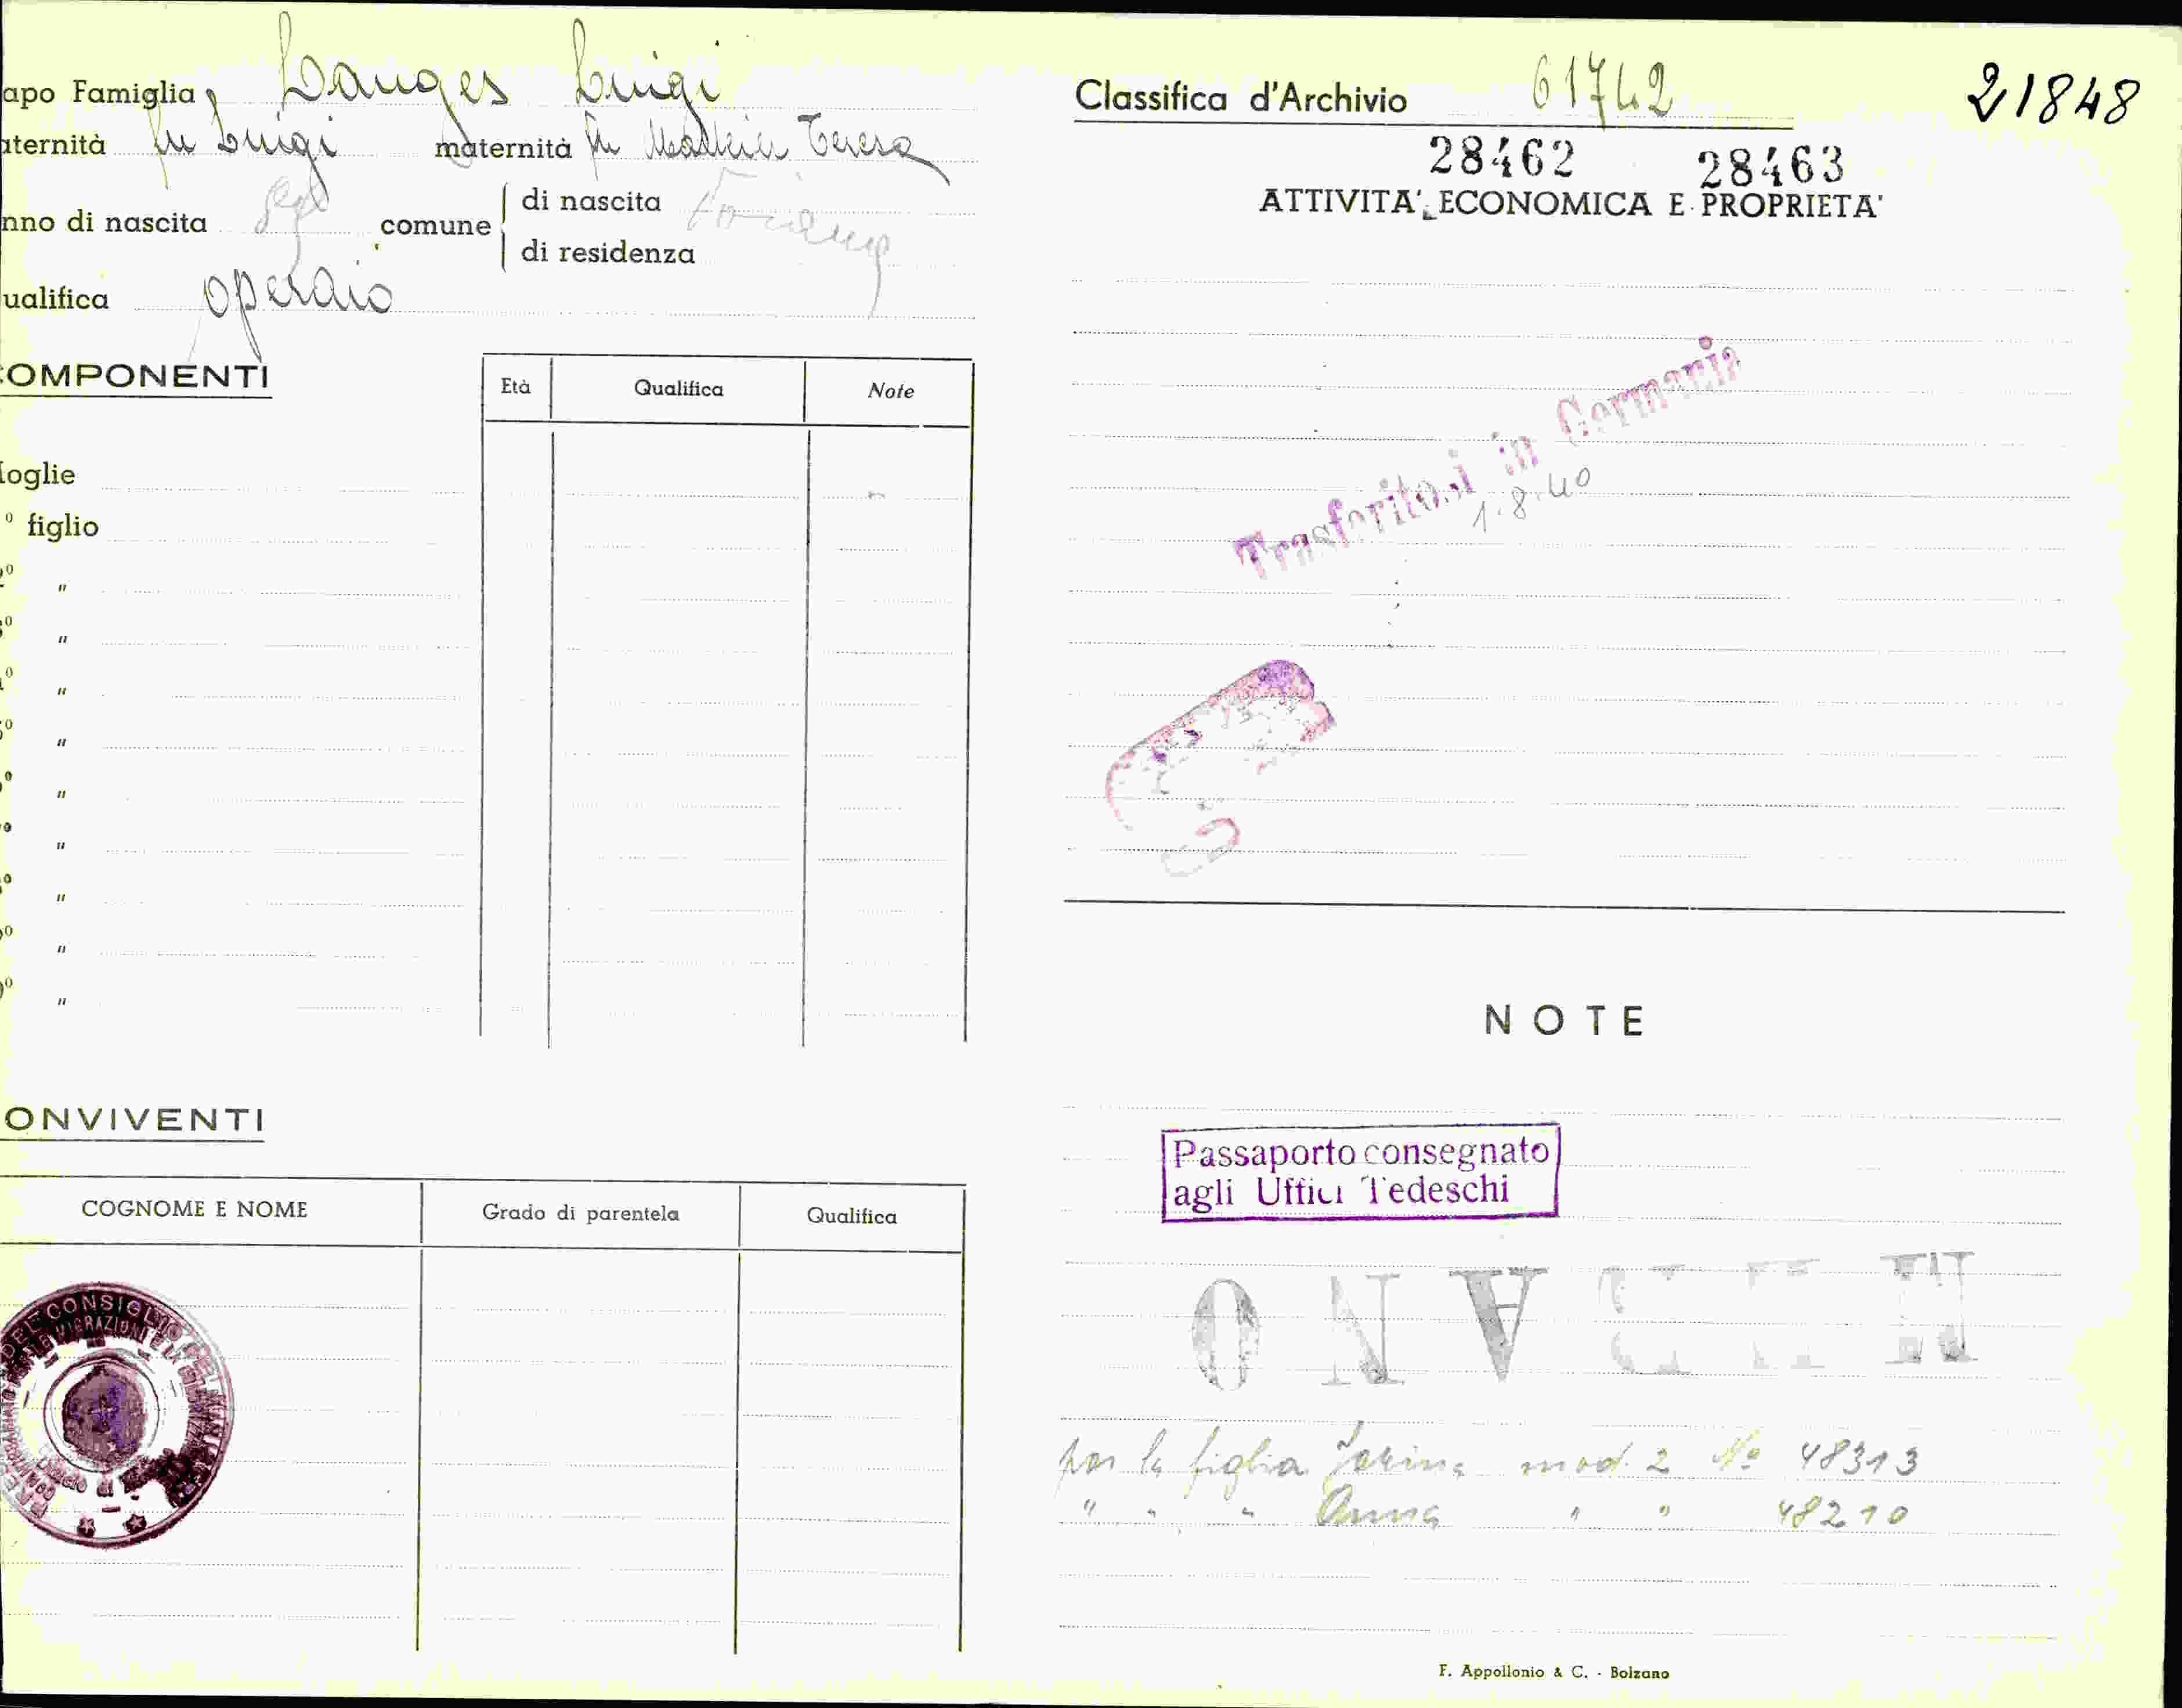 apo Famiglia Langes Luigi
aternità fu Luigi maternità fu Teresa
nno di nascita comune di nascita
di residenza
ualifica operaio
COMPONENTI
Età Qualifica Note
oglie
º figlio
2º "
3º "
º "
º "
º "
º "
º "
º "
º "
ONVIVENTI
COGNOME E NOME Grado di parentela Qualifica
Classifica d'Archivio 61742 21848
28462 28463
ATTIVITA' ECONOMICA E PROPRIETA'
Trasferitosi in Germania
1.8.40
NOTE
Passaporto consegnato
agli Uffici Tedeschi
per la figlia mod. 2 No 48313
" " " Anna " " 48210
F. Appollonio & C. - Bolzano